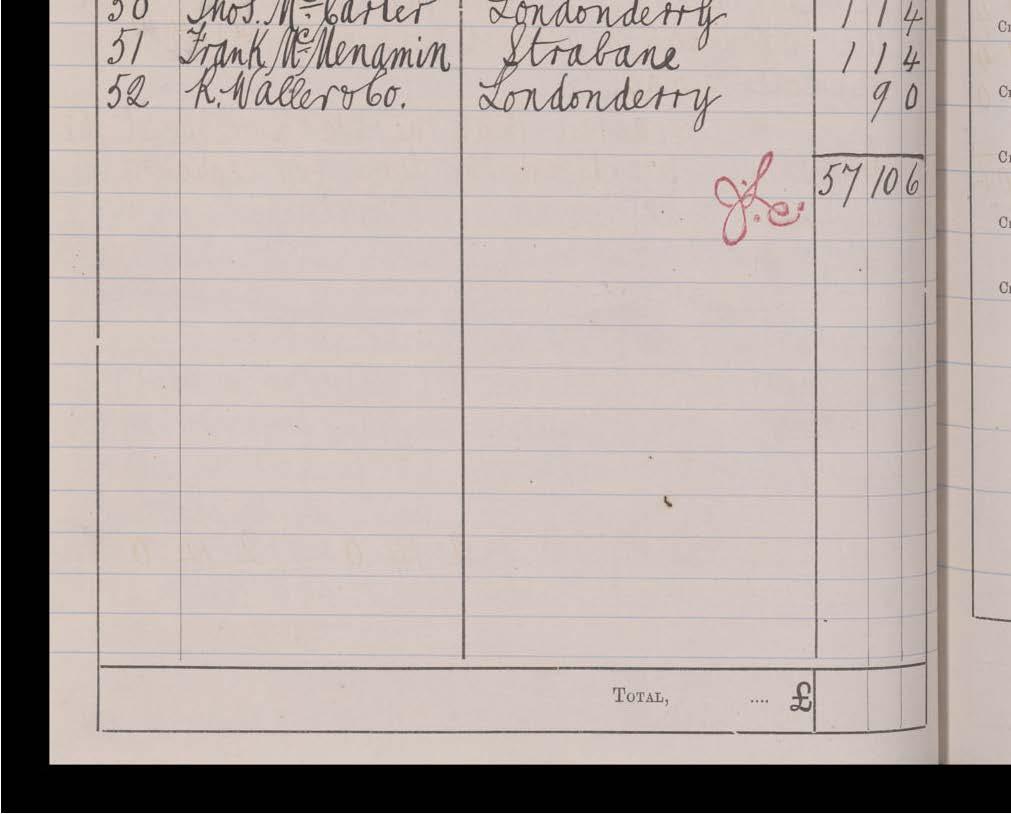 50 Thos. McCarter Londonderry 1 1 4
51 Frank McMenamin Strabane 1 1 4
52 R. Waller & Co. Londonderry 9 0
57 10 6
Total, .... £